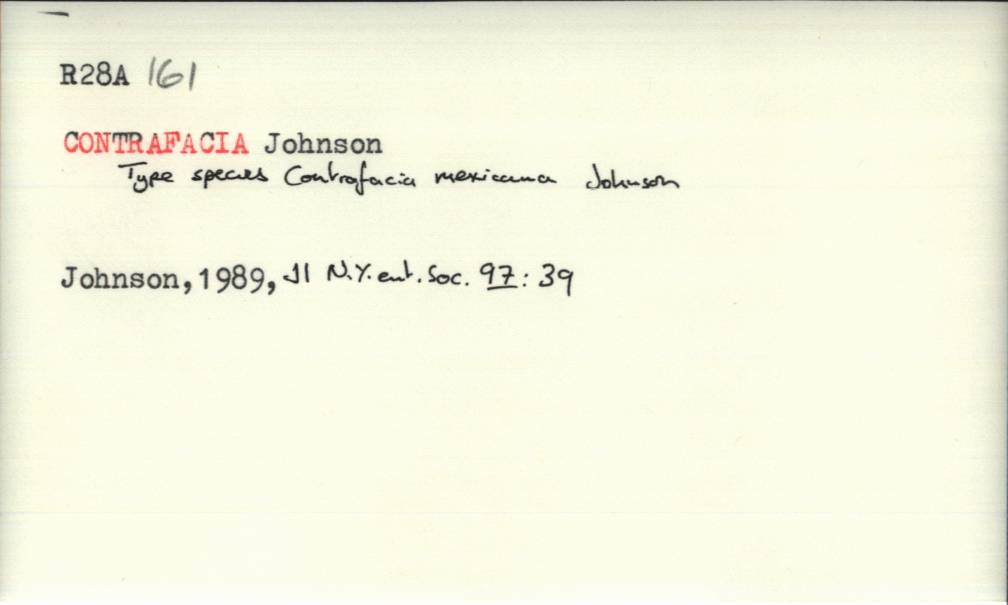 R28A 161
CONTRAFACIA Johnson
Type species Contrafacia mexicana Johnson
Johnson,1989, Jl N.Y. ent. Soc. 97: 39